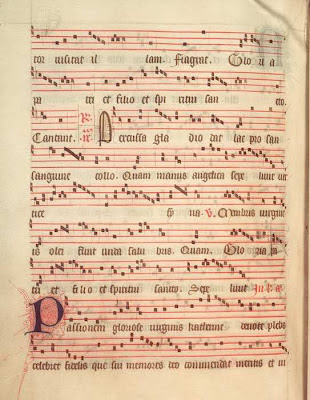 tor visitat il lam. Fragrat. Glo ri a
pa tri et filio et spi ritui san cto
Cantant. Percussa gla dio dat lac pro san
sanguine collo. Quam manus angelica sepe liuit ver
tice sy na. V. Membris virginis
is olei fluit unda salu bris. Quam. Glo ria pa
tri et filio et spiritui sancto. Sepe liuit
Passionem gloriose virginis katerine deuote plebs
celebret fidelis que sui memores deo commendat mentis et in